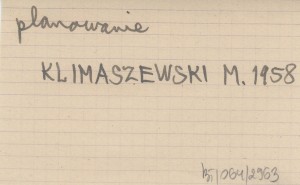 planowanie
KLIMASZEWSKI M. 1958
/064/2963